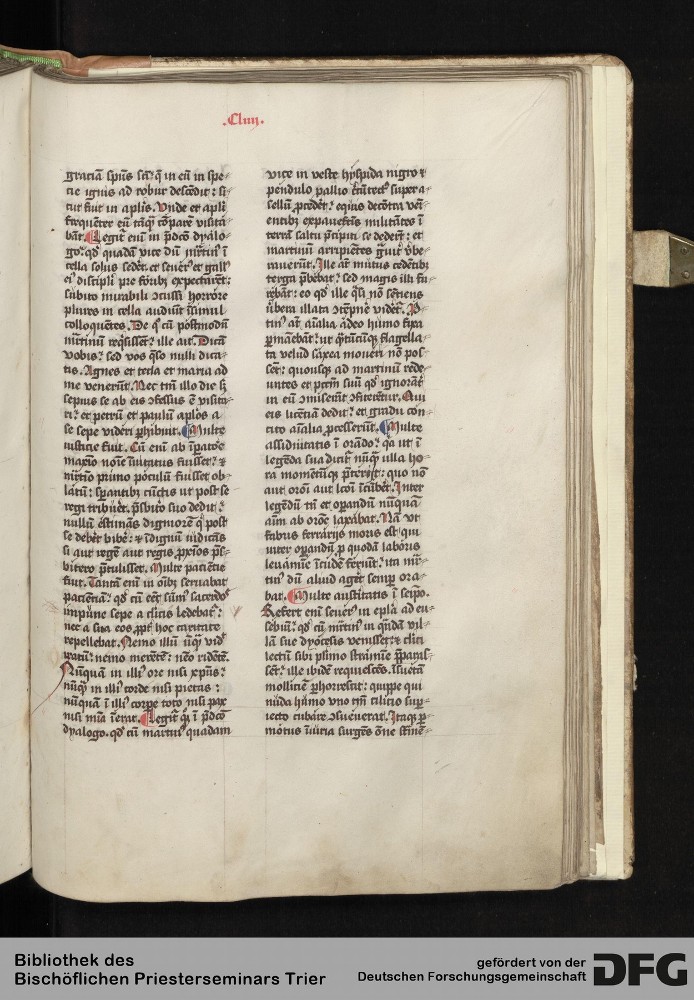 .Cliiij.
graciā spūs scī q̄ in eū in spe-
cie ignis ad robur descēdit: si-
cut fuit in aplis. Vnde et apli
frequēter eū tāq̄ cōparē visita-
bāt. Legit̄ eni in p̄dco dyalo-
go: qd̄ quadā vice dū mr̄tin⁹ ī
cella solus sedēt. et seuer⁹ et gall⁹
ei⁹ discipli pre forib⁹ expectarēt:
subito mirabili ɔcussi horrore
plures in cella audiūt īsimul
colloquētes. De q̄ cū postmodū
mr̄tinū reqsissēt: ille ait. Dicā
vobis: sed vos q̄so nulli dica-
tis. Agnes et tecla et maria ad
me venerūt. Nec tm̄ illo die s;
sepius se ab eis ɔfessus ē visita-
ri: et petrū et paulū aplos a
se sepe videri phibuit. Multe
iusticie fuit. Cū eni ab īpatoře
maxio noīe īuitatus fuisset: ⁊
mr̄tīo primo pōculū fuisset ob-
lātū: spantib⁹ cūctis ut post se
regi tribuēt. p̄sbiťo suo dedit:
nullū estimās digniorē q̄ post
se debēt bibē: ⁊ īdignū iudicās
si aut regē aut regis pxios p̄s-
bitero p̄tulisset. Multe paciēcie
fuit. Tantā eni in oīb⁹ seruabat
paciēciā: qd̄ cū eēt sūm⁹ sacerdos
impune sepe a clicis ledebat̄:
nec a sua eos ppť hoc caritate
repellebat. Nemo illū nūq̄ vidit
iratū: nemo merētē: nēo ridētē.
Nūquā in ill⁹ ore nisi xpūs:
nūq̄ in ill⁹ corde nisi pietas:
nūquā ī ill⁹ corpe toto nisi pax
nisi mīa īerat. Legit̄ q̄ ī p̄dco
dyalogo. qd̄ cū martin⁹ quadam
vice in veste hyspida nigro ⁊
pendulo pallio cūtect⁹ super a-
sellū pcedēt: equis decōtra veni-
entib⁹ expauefctis milicātes ī
terrā saltu p̄cipiti se dederūt: et
martinū arripiētes ḡuiť v̄be-
rauerūt. Ille at̄ mutus cedētib⁹
terga p̄bebat: sed magis illi fu-
rebāt: eo qd̄ ille q̄si nō sēciens
v̄bera illata ɔtēpnē videt̄. Mr̄-
tin⁹ at̄ aīalia adeo humo fixa
pmanebāt: ut q̄tūcūq̄ flagella-
ta velud saxea moueri nō pos-
sēt: quousq̄ ad martinū rede-
untes et pctm̄ suū qd̄ ignorāť
in eū ɔmiserūt ɔfiterētur. Qui
eis licenciā dedit: et gradu con-
cito aīalia pcesserūt. Multe
assiduitatis ī orādo: q̄a ut ī
legenda sua dicit̄ nūq̄ ulla ho-
ra momētūq̄ p̄teriit: quo nō
aut orōi aut lcōi īcūbēt. Inter
legēdū tn̄ et operandū nūquā
aīm ab orōe laxabat. Nā vt
fabris ferrariis moris est qui
inter operandū p quodā laboris
leuamie īcudē feriūt: ita mr̄-
tin⁹ dū aliud agēt semp ora-
bat. Multe austitatis ī seipo.
Refert eni seuer⁹ in epla ad eu-
sebiū: qd̄ cū mr̄tin⁹ in q̄ndā vil-
lā sue dyocesis venisset: ⁊ clici
lectū sibi plimo stramie pparas-
sēt: ille ibidē requiescēs. īsuetā
molliciē phorrescit: quippe qui
nuda humo vno tm̄ cilicio sup-
iecto cubare ɔsueuerat. Itaq̄ p-
motus īiuria surgēs ōne strāē-
Bibliothek des
Bischöflichen Priesterseminars Trier
gefördert von der
Deutschen Forschungsgemeinschaft
DFG